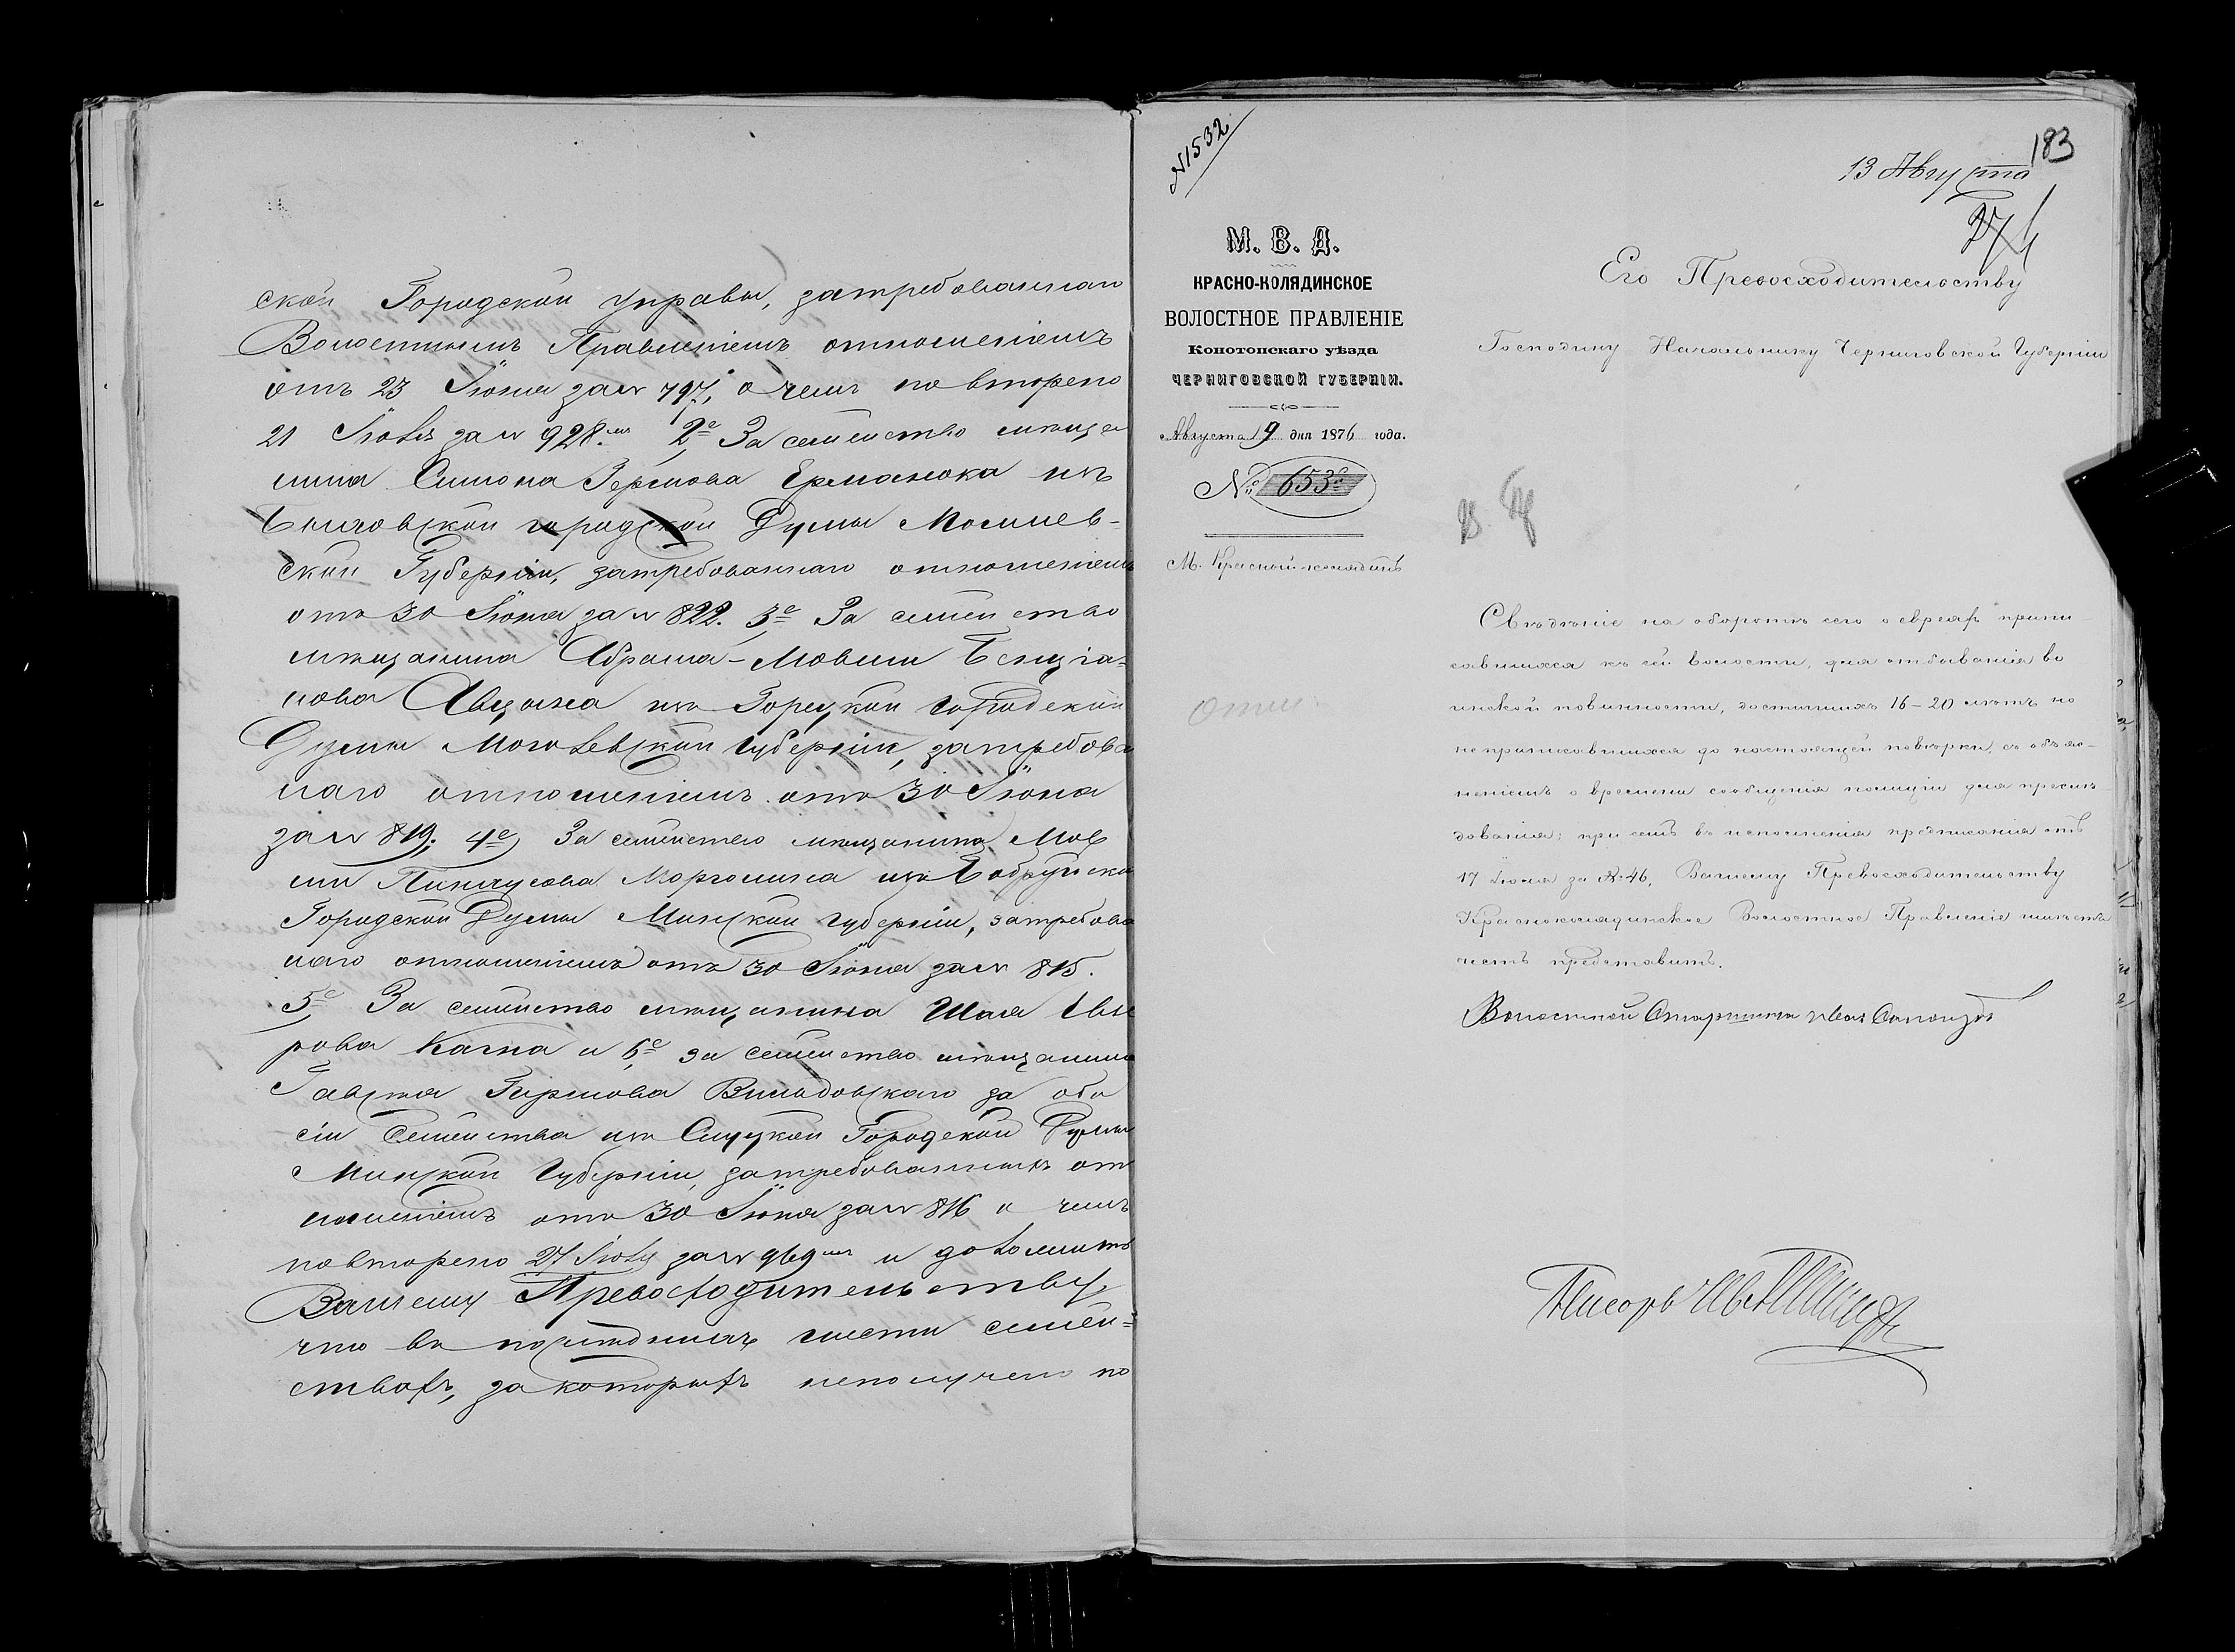 ской Городской Управы, затребованнаго
Волостнымъ Правленіемъ отношеніемъ
отъ 23 Іюня за № 797, о чемъ повторено
21 Іюля за № 928.мъ 2е, За семейство мѣща
нина Симона Герснова Ерманока изъ
городской Думы Могилев-
ской Губерніи, затребованнаго отношеніемъ
отъ 30 Іюня за № 822. 3е, За семейство
мѣщанина Абрама-Мовши Бенціа-
нова изъ Горецкой Городской
Думы Могилевской Губерніи, затребова
наго отношеніемъ отъ 30 Іюня
за № 819. 4е, За семейство мѣщанина Мов
ши Пинкусова Марголина изъ Бобруйской
Городской Думы Минской Губерніи, затребова
наго отношеніемъ отъ 30 Іюня за № 815.
5е, За семейство мѣщанина Шая
рова Кагна и 6е, за семейство мѣщанина
Гиршова Вильдовскаго за оба
сіи семейства изъ Слуцкой Городской Думы
Минской Губерніи, затребованныхъ от
ношеніемъ отъ 30 Іюня за № 816 о чемъ
повторено 27 Іюля за № 969мъ и доложить
Вашему Превосходительству,
что въ шести семей=
ствахъ, за которыхъ неполучено по
№1532
183
13 Августа
274
М. В. Д.
КРАСНО-КОЛЯДИНСКОЕ
ВОЛОСТНОЕ ПРАВЛЕНІЕ
Конотопскаго уѣзда
ЧЕРНИГОВСКОЙ ГУБЕРНІИ.
Августа 9 дня 1876 года.
№ 653й
М. Красный-колядинъ
Его Превосходительству
Господину Начальнику Черниговской Губерніи
Свѣдѣніе на оборотѣ сего о евреяхъ припи-
савшихся къ сей волости, для отбыванія во
инской повинности, достигшихъ 16-20 лѣтъ но
неприписавшихся до настоящей повѣрки, съ объяс-
неніемъ о времени сообщенія полиціи для преслѣ-
дованія; при семъ въ исполненія предписанія отъ
17 Іюля за №46, Вашему Превосходительству
Красноколядинское Волостное Правленіе имѣетъ
честь представить.
Волостной Старшина Иван
Писарь